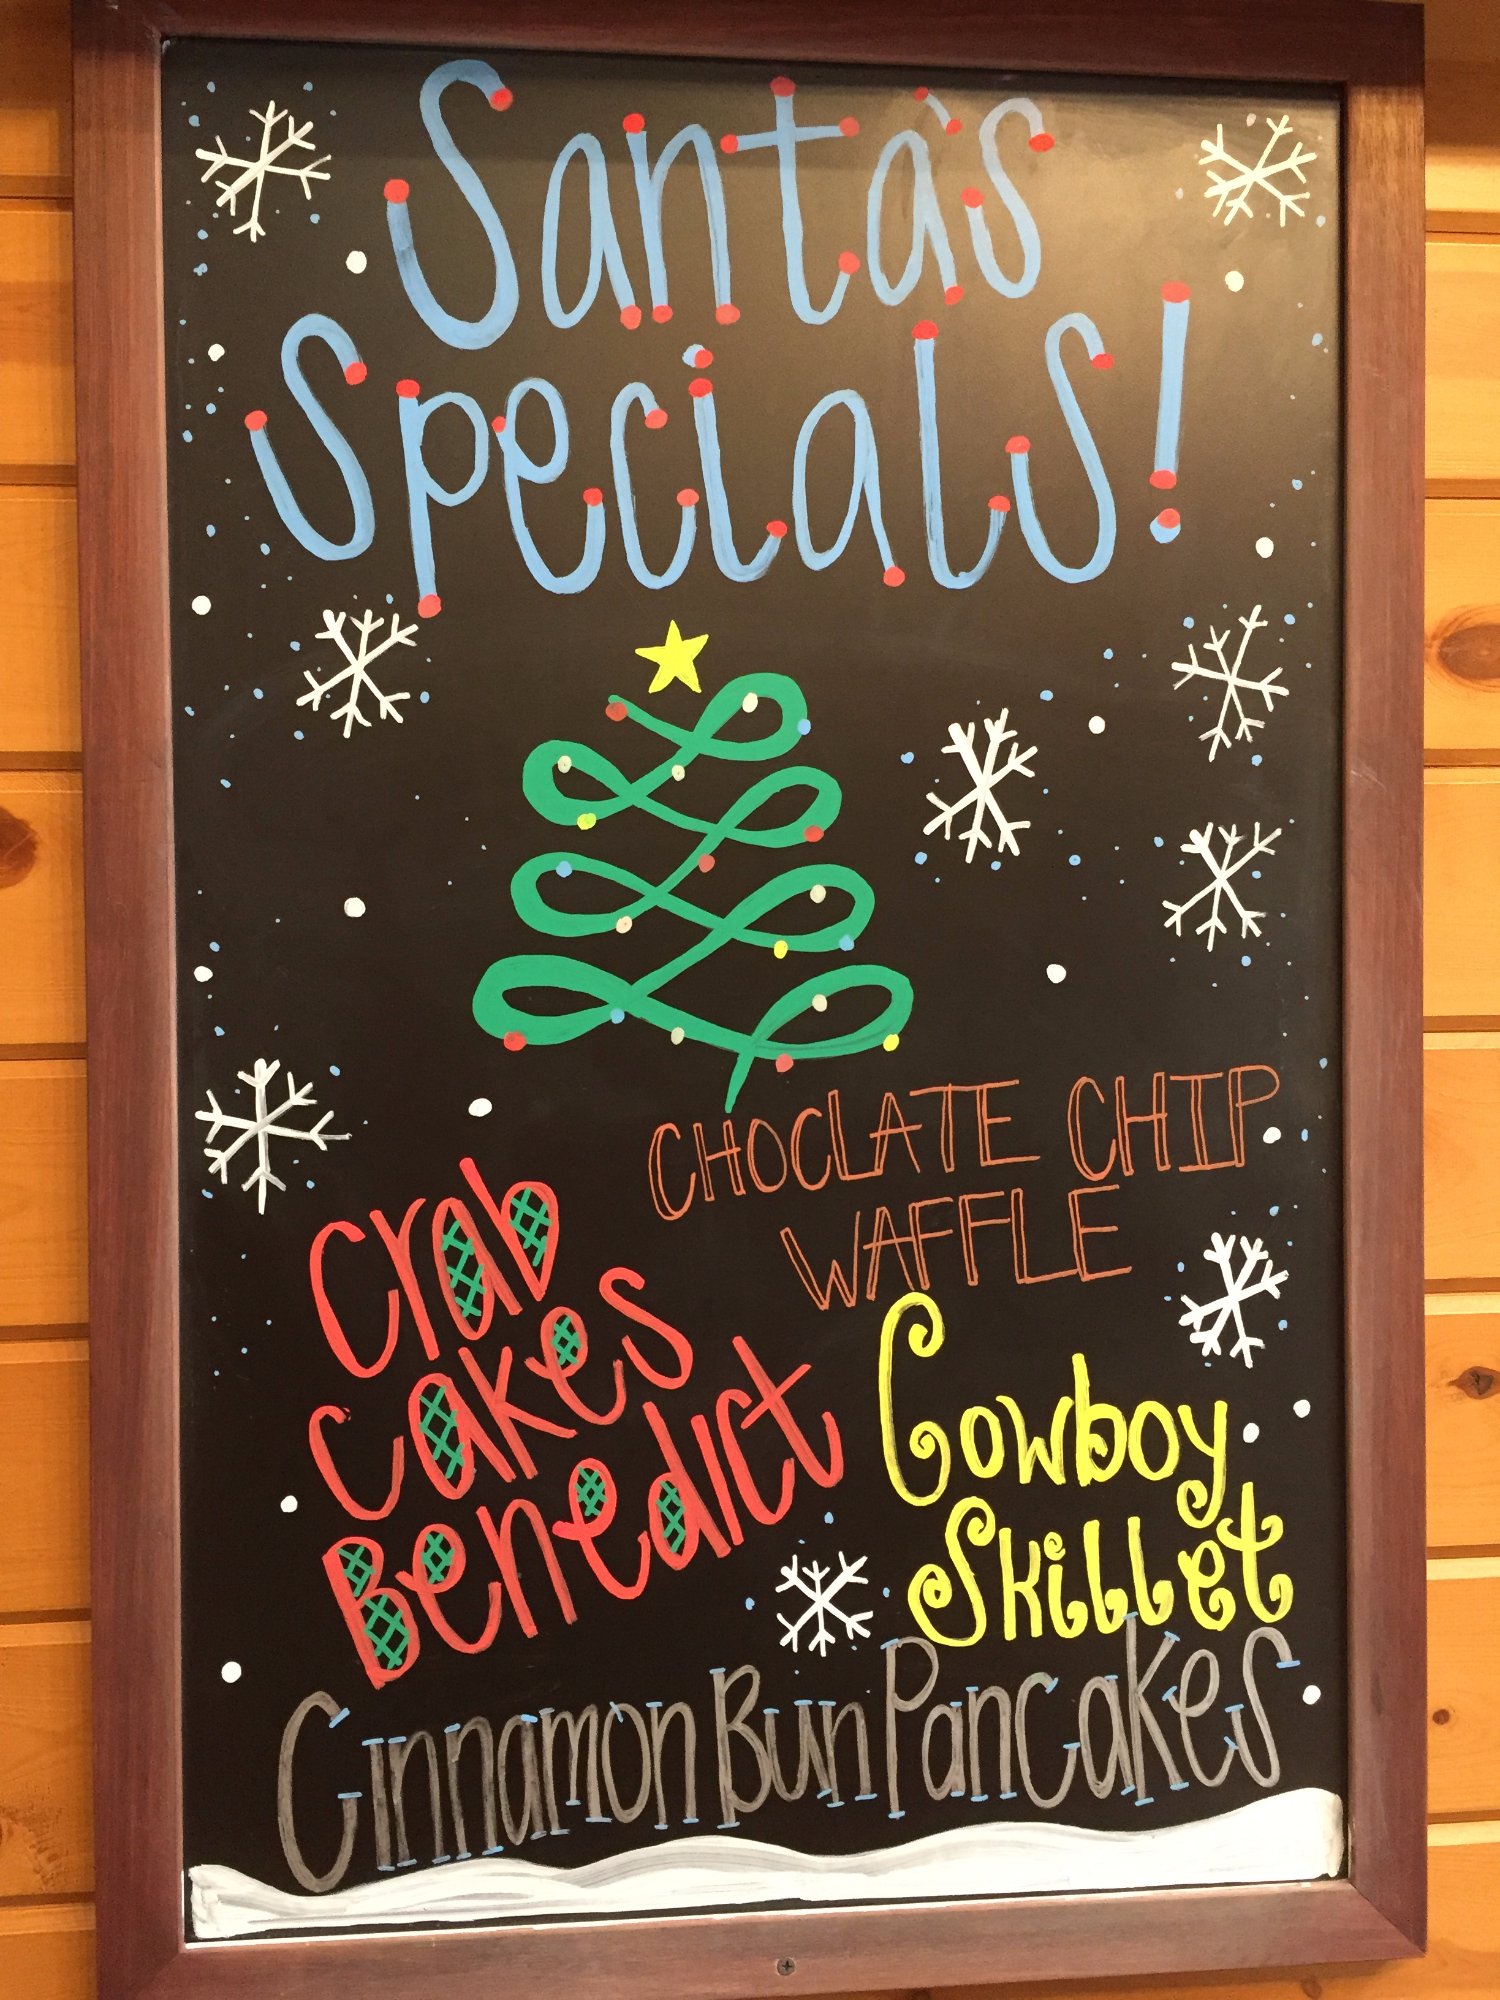 Santa's
Specials!
CHOCLATE CHIP
WAFFLE
Crab
Cakes
Benedict
Cowboy
Skillet
Cinnamon Bun Pancakes